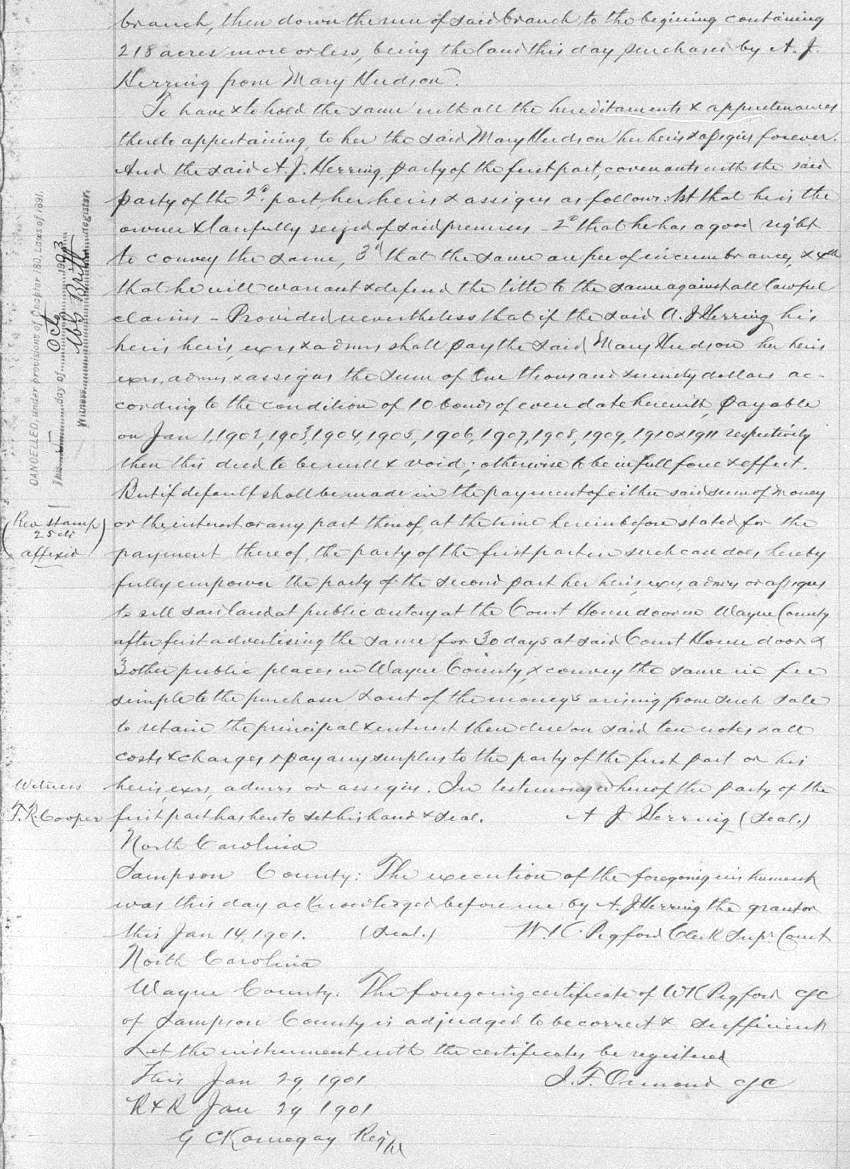 branch, then down the run of said branch to the begining containing
218 acres more or less, being the land this day purchased by A. J.
Herring from Mary Hudson.
To have & to hold the same with all the hereditaments & appurtenances
thereto appertaining, to her the said Mary Hudson her heirs & assigns forever.
And the said A. J. Herring party of the first part, covenants with the said
party of the 2d part, her heirs & assigns as follows: 1st that he is the
owner & lawfully seized of said premises - 2d that he has a good right
to convey the same, 3d that the same are free of incumbrances, & 4th
that he will warrant & defend the title to the same against all lawful
claims - Provided nevertheless that if the said A. J. Herring his
heirs heirs, exrs & admrs shall pay the said Mary Hudson her heirs
exrs, admrs & assigns the sum of One thousand & ninety dollars ac-
cording to the condition of 10 bonds of even date herewith, payable
on Jan 1, 1902, 1903, 1904, 1905, 1906, 1907, 1908, 1909, 1910 & 1911 respectively
then this deed to be null & void; otherwise to be in full force & effect.
But if default shall be made in the payment of either said sum of money
or the interest or any part thereof, at the time hereinbefore stated for the
payment thereof, the party of the first part in such case does hereby
fully empower the party of the second part her heirs, exrs, admrs or assigns
to sell said land at public outcry at the Court House door in Wayne County
after first advertising the same for 30 days at said Court House door &
3 other public places in Wayne County, & convey the same in fee
simple to the purchaser & out of the moneys arising from such sale
to retain the principal & interest then due on said ten notes & all
costs & charges & pay any surplus to the party of the first part or his
heirs, exrs, admrs or assigns. In testimony whereof the party of the
first part has hereto set his hand & seal. A J Herring (Seal.)
North Carolina
Sampson County: The execution of the foregoing instrument
was this day acknowledged before me by A. J. Herring the grantor
this Jan 14, 1901. (Seal.) W. K. Pigford Clerk Supr Court
North Carolina
Wayne County. The foregoing certificate of W K Pigford CSC
of Sampson County is adjudged to be correct & sufficient
Let the instrument with the certificates be registered
This Jan 29, 1901 I. F. Ormond CSC
R & R Jan 29 1901
G C Kornegay Reg
CANCELLED, under provisions of Chapter 180, Laws of 1891.
This 5 day of Oct 1903
Witness Abb Britt Register.
(Rev Stamp
25 cts
affixed)
Witness
T. R. Cooper